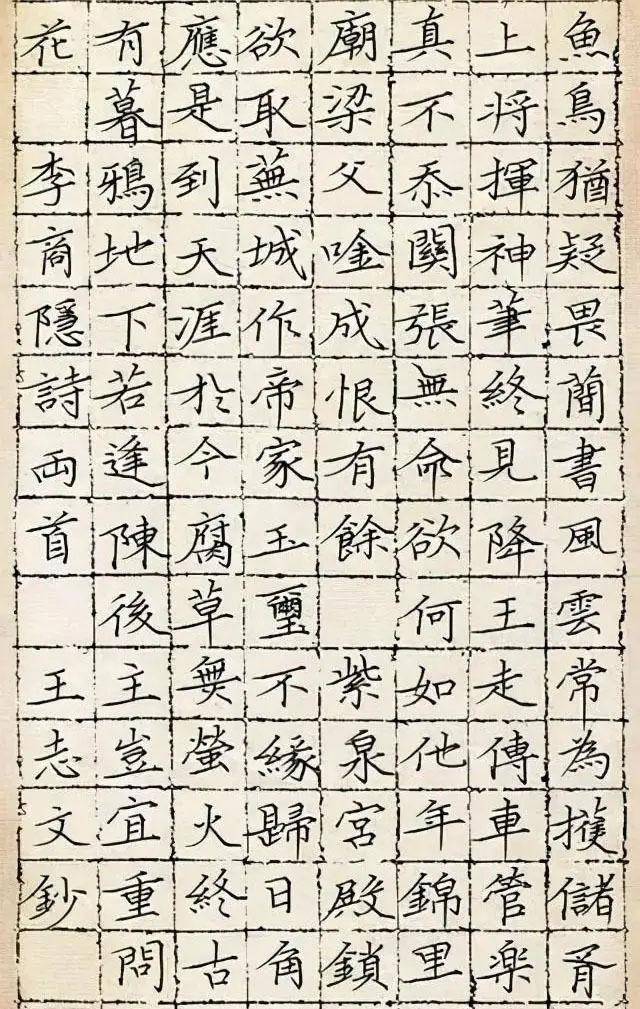 魚鳥猶疑畏簡書風雲常為擁儲胥
上將揮神筆終見降王走傳車管楽
真不忝關張無命欲何如他年錦里
廟梁父唫成恨有餘 紫泉宮殿鎖
欲取蕪城作帝家玉璽不緣歸日角
應是到天涯於今腐草無螢火終古
有暮鴉地下若逢陳後主豈宜重問
花 李商隱詩両首 王志文鈔